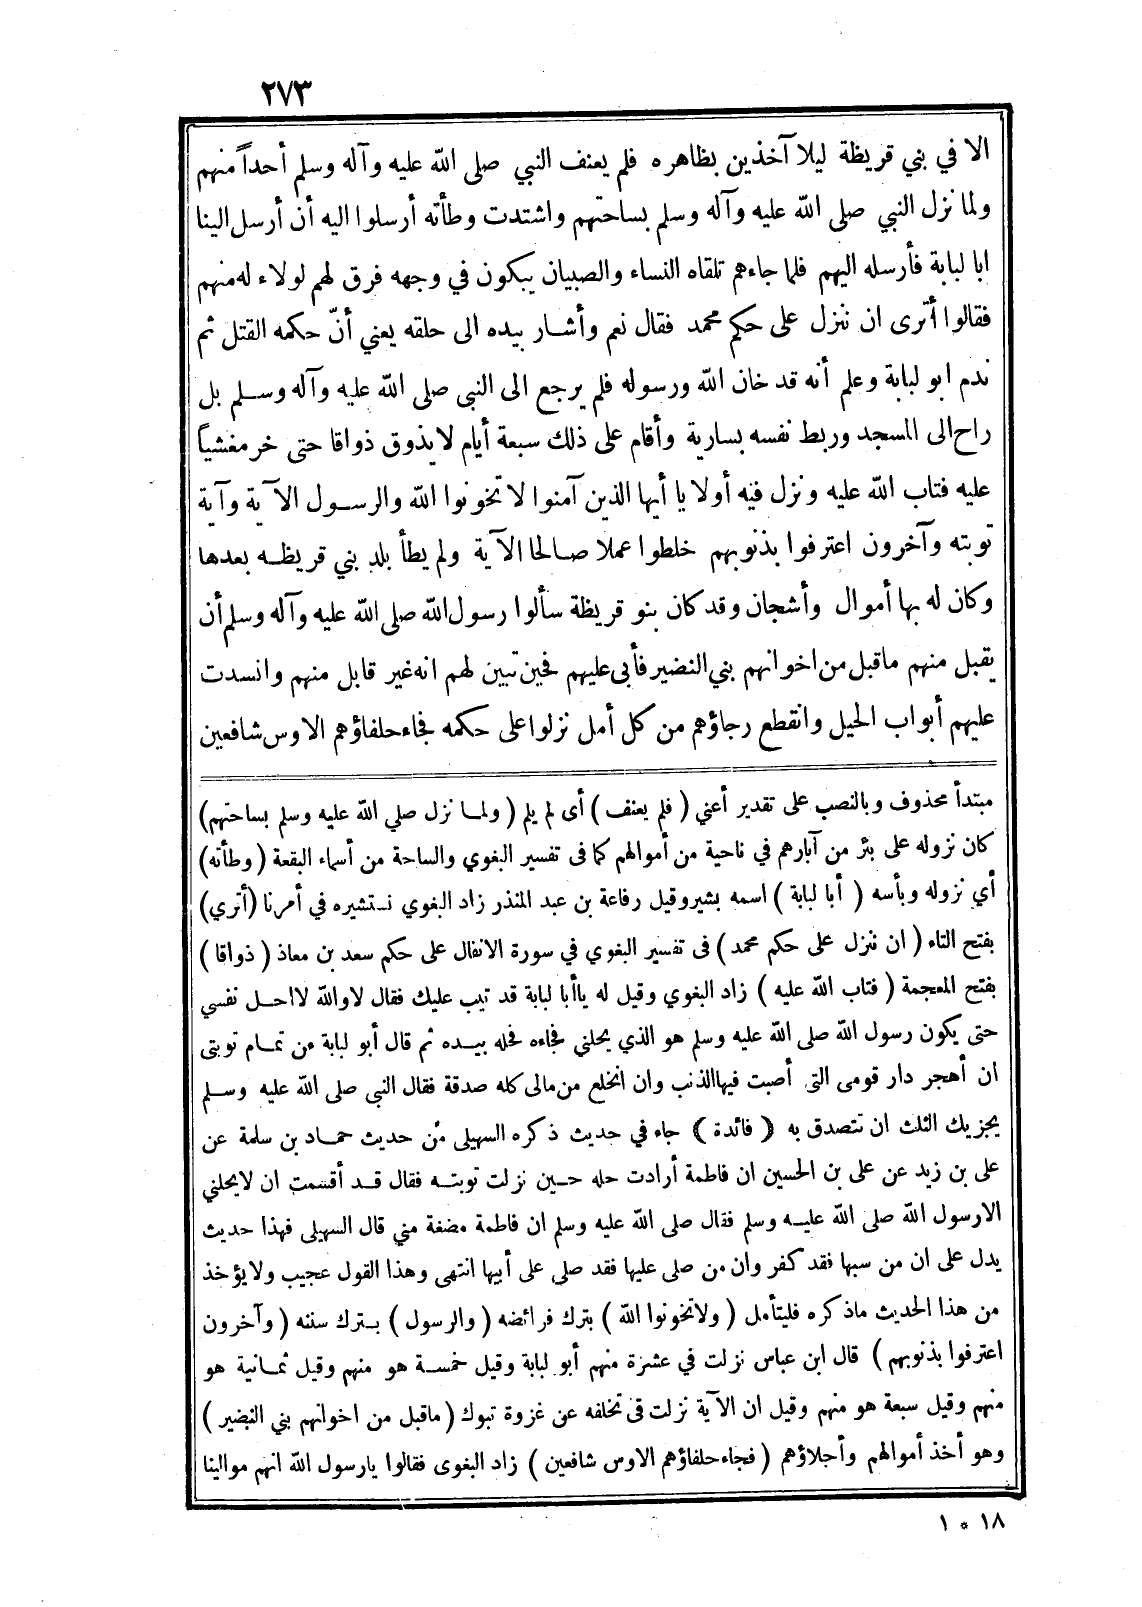 ٢٧٣
الا في بني قريظة ليلا آخذين بظاهره فلم يعنف النبي صلى الله عليه وآله وسلم أحداً منهم
ولما نزل النبي صلى الله عليه وآله وسلم بساحتهم واشتدت وطأته أرسلوا اليه أن أرسل الينا
ابا لبابة فأرسله اليهم فلما جاءهم تلقاه النساء والصبيان يبكون في وجهه فرق لهم لولاء له منهم
فقالوا أترى ان ننزل على حكم محمد فقال نعم وأشار بيده الى حلقه يعني أنّ حكمه القتل ثم
ندم ابو لبابة وعلم أنه قد خان الله ورسوله فلم يرجع الى النبي صلى الله عليه وآله وسلم بل
راح الى المسجد وربط نفسه بسارية وأقام على ذلك سبعة أيام لا يذوق ذواقا حتى خر مغشياً
عليه فتاب الله عليه ونزل فيه أولا يا أيها الذين آمنوا لا تخونوا الله والرسول الآية وآية
توبته وآخرون اعترفوا بذنوبهم خلطوا عملا صالحا الآية ولم يطأ بلد بني قريظه بعدها
وكان له بها أموال وأشجان وقد كان بنو قريظة سألوا رسول الله صلى الله عليه وآله وسلم أن
يقبل منهم ماقبل من اخوانهم بني النضير فأبى عليهم فحين تبين لهم انه غير قابل منهم وانسدت
عليهم أبواب الحيل وانقطع رجاؤهم من كل أمل نزلوا على حكمه فجاء حلفاؤهم الاوس شافعين
مبتدأ محذوف وبالنصب على تقدير أعني ( فلم يعنف ) أى لم يلم ( ولما نزل صلي الله عليه وسلم بساحتهم)
كان نزوله على بئر من آبارهم في ناحية من أموالهم كما فى تفسير البغوي والساحة من أسماء البقعة ( وطأته)
أي نزوله وبأسه ( أبا لبابة ) اسمه بشير وقيل رفاعة بن عبد المنذر زاد البغوي نستشيره في أمرنا (أتري)
بفتح التاء ( ان ننزل على حكم محمد ) فى تفسير البغوي في سورة الانفال على حكم سعد بن معاذ ( ذواقا )
بفتح المعجمة ( فتاب الله عليه ) زاد البغوي وقيل له ياأبا لبابة قد تيب عليك فقال لا والله لا احل نفسي
حتى يكون رسول الله صلى الله عليه وسلم هو الذي يحلني فجاءه فحله بيده ثم قال أبو لبابة من تمام توبتى
ان أهجر دار قومى التى أصبت فيها الذنب وان انخلع من مالى كله صدقة فقال النبي صلى الله عليه وسلم
يجزيك الثلث ان تتصدق به ( فائدة ) جاء في حديث ذكره السهيلى من حديث حماد بن سلمة عن
على بن زيد عن على بن الحسين ان فاطمة أرادت حله حين نزلت توبته فقال قد أقسمت ان لايحلني
الارسول الله صلى الله عليه وسلم فقال صلى الله عليه وسلم ان فاطمة مضغة مني قال السهيلى فهذا حديث
يدل على ان من سبها فقد كفر وان من صلى عليها فقد صلى على أبيها انتهى وهذا القول عجيب ولا يؤخذ
من هذا الحديث ماذكره فليتأمل ( ولا تخونوا الله ) بترك فرائضه ( والرسول ) بترك سننه ( وآخرون
اعترفوا بذنوبهم ) قال ابن عباس نزلت في عشرة منهم أبو لبابة وقيل خمسة هو منهم وقيل ثمانية هو
منهم وقيل سبعة هو منهم وقيل ان الآية نزلت فى تخلفه عن غزوة تبوك ( ماقبل من اخوانهم بني النضير )
وهو أخذ أموالهم وأجلاؤهم ( فجاء حلفاؤهم الاوس شافعين ) زاد البغوى فقالوا يارسول الله انهم موالينا
١٨ * ١